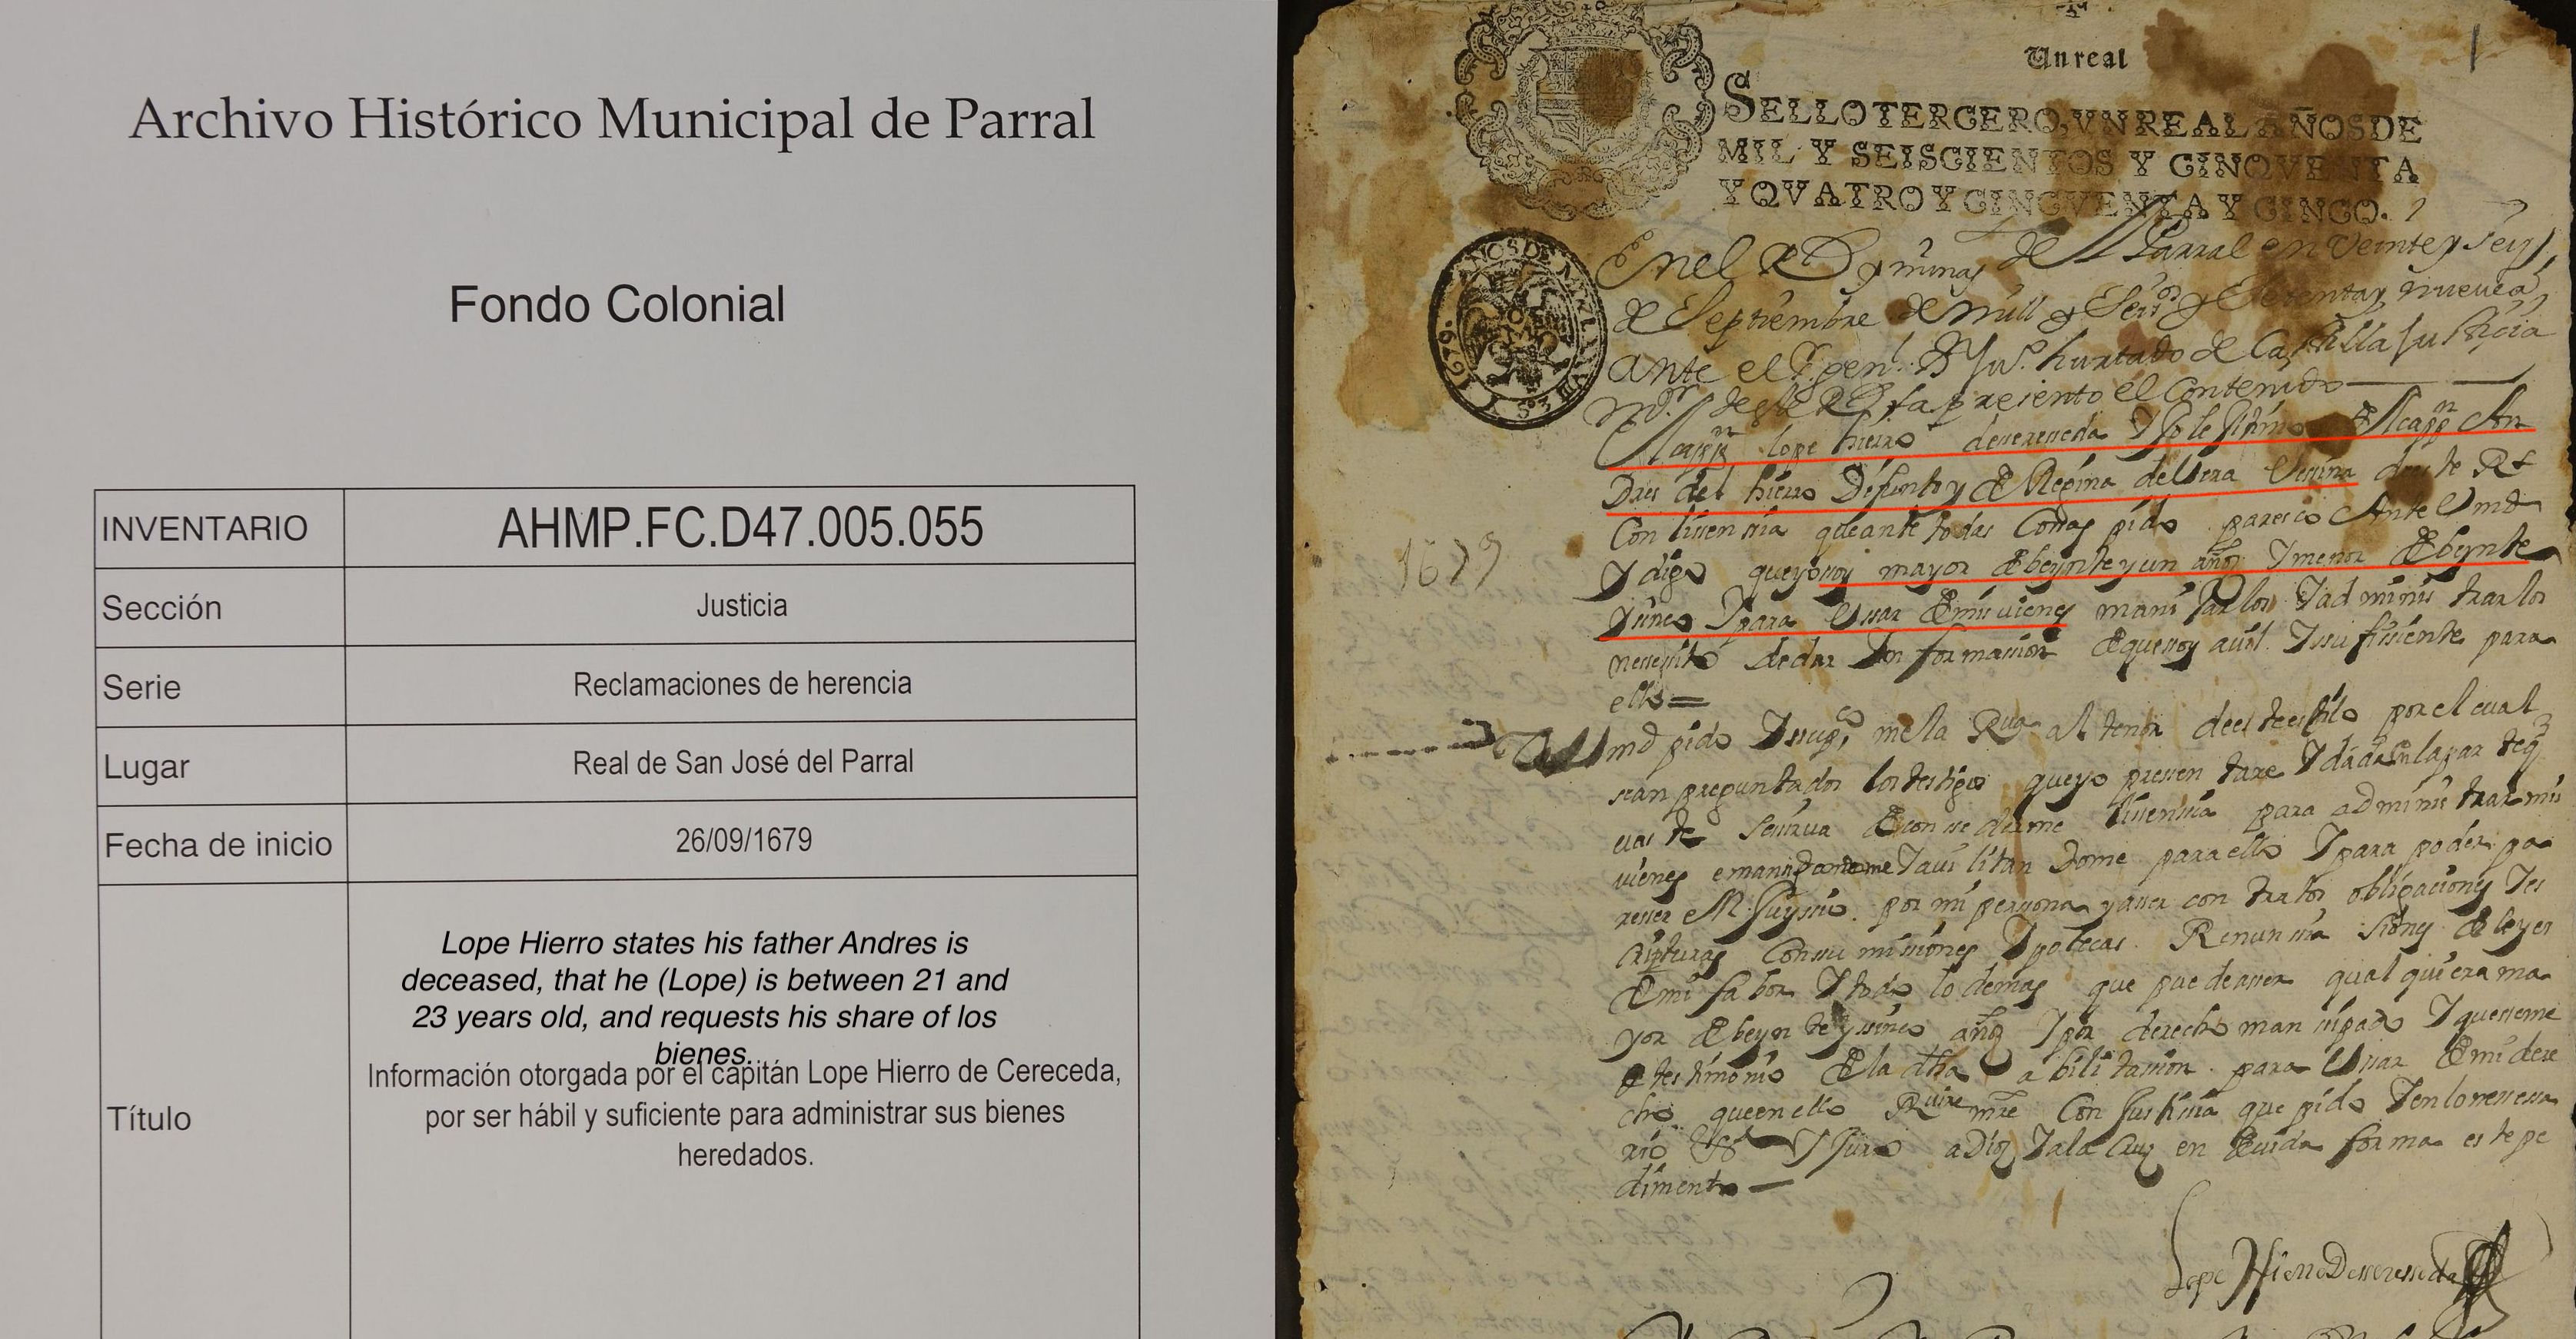 Archivo Histórico Municipal de Parral
Fondo Colonial
INVENTARIO AHMP.FC.D47.005.055
Sección Justicia
Serie Reclamaciones de herencia
Lugar Real de San José del Parral
Fecha de inicio 26/09/1679
Título
Lope Hierro states his father Andres is
deceased, that he (Lope) is between 21 and
23 years old, and requests his share of los
bienes.
Información otorgada por el capitán Lope Hierro de Cereceda,
por ser hábil y suficiente para administrar sus bienes
heredados.
1
Un real
SELLO TERCERO, VN REAL AÑOS DE
MIL Y SEISCIENTOS Y CINQVENTA
Y QVATRO Y CINCVENTA Y CINCO.
1679
En el Rl D y minas del Parral en Veinte y seis
de Septiembre de mill y Seisos y Setenta y nueve as
ante el Gen.l D Ju.o hurtado de Castilla Justicia
m.or deste Rl fa presento el Contenido
El cappn lope hierro desereseda Ijo lejitimo del cappn An
dres del hierro Difunto y de Regina delvera Vesina deeste Rl
Con lisensia que ante todas Cossas pido paresco Ante Vmd
Y digo que yo soy mayor de beynte y un años Y menor de beynte
1679
Y sinco Y para Ussar de mis vienes manejarlos Y adminis trarlos
nesesito de dar Informasion de que soy auil Y sufisiente para
ello =
A Vmd pido Y supco me la Rva al tenor deesteescrito por el cual
sean preguntados los testigos que yo pressentare Y dada en la parte q
vaste se sirva de consederme lisensia para adminis trar mis
vienes emansipandome Y auilitandome para ello Y para poder pa
reser en Juysio por mi persona y aser con tratos obligaciones Y es
cripturas Con sumisiones Ypotecas Renunsia siones de leyes
de mi fabor Y todo lo demas que puede asser qualquiera ma
yor de beynte y ssinco años Y por derecho mansipado Y que se me
de testimonio de la dha abilitasion para Ussar de mi dere
cho que en ello Rvire mrd Con Justisia que pido Y en lo nessesa
rio &a Y Juro a Dios Y a la Cruz en devida forma este pe
dimento
Lope Hierro Dessereseda